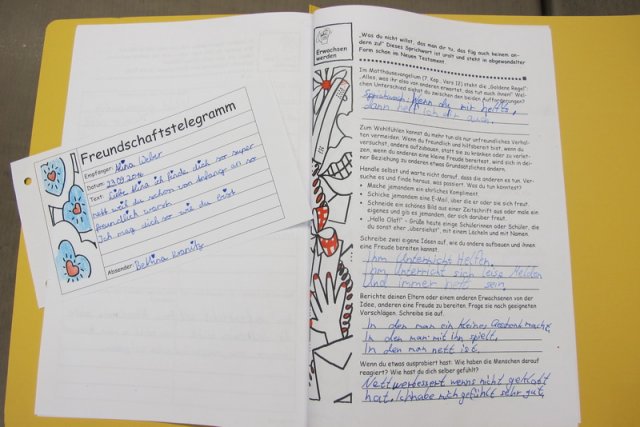 Freundschaftstelegramm
Empfänger: Alina Weber
Datum: 23.09.2016
Text: Liebe Alina ich finde dich so super
nett weil du schon von Anfang an so
freundlich warst.
Ich mag dich so wie du bist
Absender: Bettina
Erwachsen
werden
„Was du nicht willst, das man dir tu, das füg auch keinem an-
dern zu!“ Dieses Sprichwort ist uralt und steht in abgewandelter
Form schon im Neuen Testament.
Im Matthäusevangelium (7. Kap., Vers 12) steht die „Goldene Regel“:
„Alles, was ihr also von anderen erwartet, das tut auch ihnen!“ Wel-
chen Unterschied siehst du zwischen den beiden Aufforderungen?
Wenn du mir hilfst,
dann helf ich dir auch.
Zum Wohlfühlen kannst du mehr tun als nur unfreundliches Verhal-
ten vermeiden. Wenn du freundlich und hilfsbereit bist, wenn du
versuchst, andere aufzubauen, statt sie zu kränken oder zu verlet-
zen, wenn du anderen eine kleine Freude bereitest, wird sich in dei-
ner Beziehung zu anderen etwas Grundsätzliches ändern.
Handle selbst und warte nicht darauf, dass die anderen es tun. Ver-
suche es und finde heraus, was passiert. Was du tun könntest?
• Mache jemandem ein ehrliches Kompliment.
• Schicke jemandem eine E-Mail, über die er oder sie sich freut.
• Schneide ein schönes Bild aus einer Zeitschrift aus oder male ein
eigenes und gib es jemandem, der sich darüber freut.
• „Hallo Olaf!“ - Grüße heute einige Schülerinnen oder Schüler, die
du sonst eher „übersiehst“, mit einem Lächeln und mit Namen.
Schreibe zwei eigene Ideen auf, wie du andere aufbauen und ihnen
eine Freude bereiten kannst.
Ihm Unterricht Helfen.
Ihm Unterricht sich leise Melden
Und immer nett sein.
Berichte deinen Eltern oder einem anderen Erwachsenen von der
Idee, anderen eine Freude zu bereiten. Frage sie nach geeigneten
Vorschlägen. Schreibe sie auf.
In den man ein kleines Geschenk macht,
In den man mit ihn spielt,
In den man nett ist.
Wenn du etwas ausprobiert hast: Wie haben die Menschen darauf
reagiert? Wie hast du dich selber gefühlt?
Nett wenns nicht geklappt
hat. Ich habe mich gefühlt sehr gut,